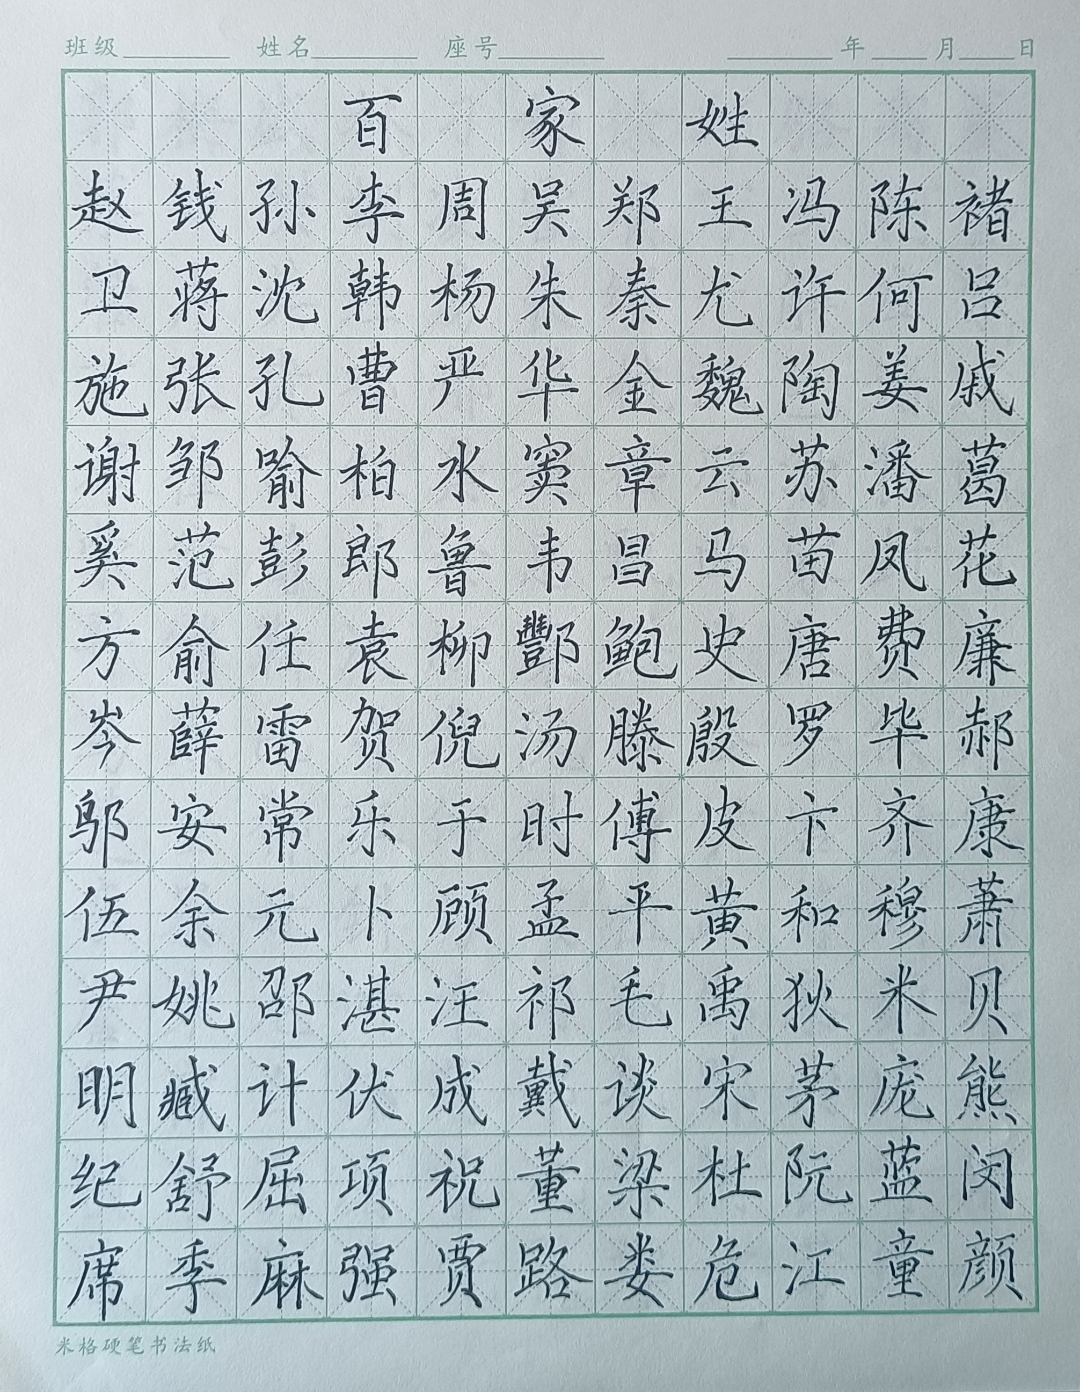 班级 姓名 座号 年 月 日
百家姓
赵钱孙李周吴郑王冯陈褚
卫蒋沈韩杨朱秦尤许何吕
施张孔曹严华金魏陶姜戚
谢邹喻柏水窦章云苏潘葛
奚范彭郎鲁韦昌马苗凤花
方俞任袁柳酆鲍史唐费廉
岑薛雷贺倪汤滕殷罗毕郝
邬安常乐于时傅皮卞齐康
伍余元卜顾孟平黄和穆萧
尹姚邵湛汪祁毛禹狄米贝
明臧计伏成戴谈宋茅庞熊
纪舒屈项祝董梁杜阮蓝闵
席季麻强贾路娄危江童颜
米格硬笔书法纸